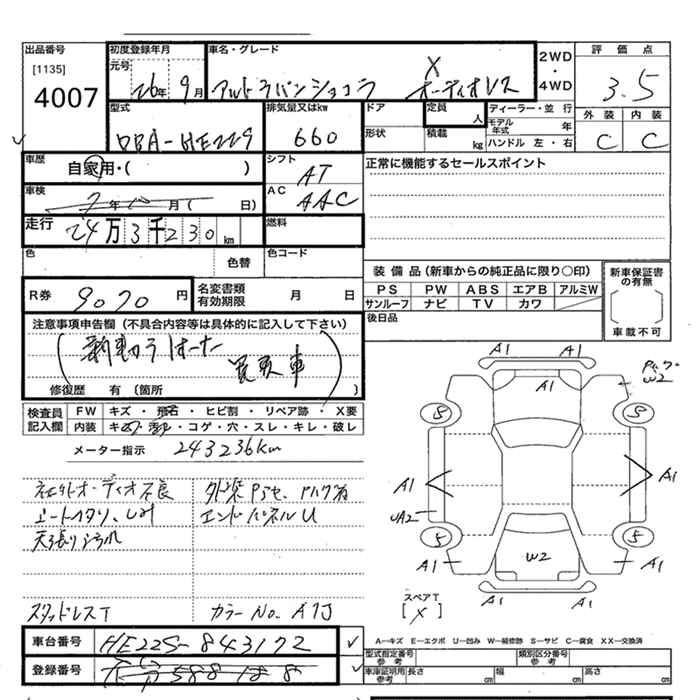 出品番号
[1135]
4007
初度登録年月
元号
26年 9月
車名・グレード
アルトラパンショコラ
X
オーディオレス
2WD
・
4WD
評価点
3.5
外装 内装
C C
型式
DBA-HE22S
排気量又はkw
660
ドア
形状
定員
人
積載
kg
ディーラー・並行
モデル年式 年
ハンドル 左・右
車歴
自家用・( )
シフト
AT
車検
年 月( 日)
AC
AAC
走行
24万3千230km
燃料
色
色替
色コード
正常に機能するセールスポイント
R券
9070円
名変書類
有効期限
月 日
装備品(新車からの純正品に限り〇印)
PS PW ABS エアB アルミW
サンルーフ ナビ TV カワ
後日品
新車保証書
の有無
車載不可
注意事項申告欄(不具合内容等は具体的に記入して下さい)
買取車
修復歴 有(箇所 )
検査員
記入欄
FW キズ・飛石・ヒビ割・リペア跡・X要
内装 キズ・汚れ・コゲ・穴・スレ・キレ・破レ
メーター指示 243236km
社外オーディオ不良
シートヘタリ、しみ
天張り汚れ
スタッドレスT
エンドパネルU
カラーNo. A7J
A1 A1
A1
W2
S S
A1 A1
UA2
S S
A1 A1
W2
A1 A1
スペアT
[X]
A―キズ E―エクボ U―凹み W―補修跡 S―サビ C―腐食 XX―交換済
車台番号
HE22S-843172
登録番号
型式指定番号
参考
類別区分番号
参考
車庫証明用
参考
長さ cm 幅 cm 高さ cm